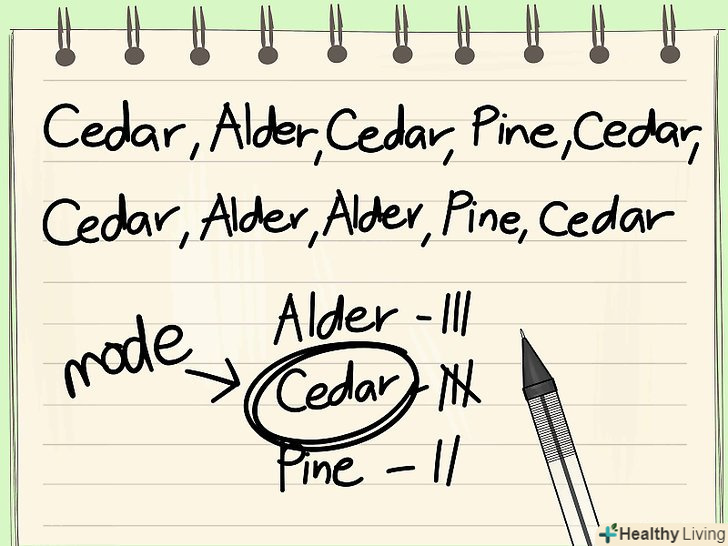 Cedar, Alder, Cedar, Pine, Cedar,
Cedar, Alder, Alder, Pine, Cedar
mode
Alder - |||
Cedar - 卌
Pine - ||
Healthy Living